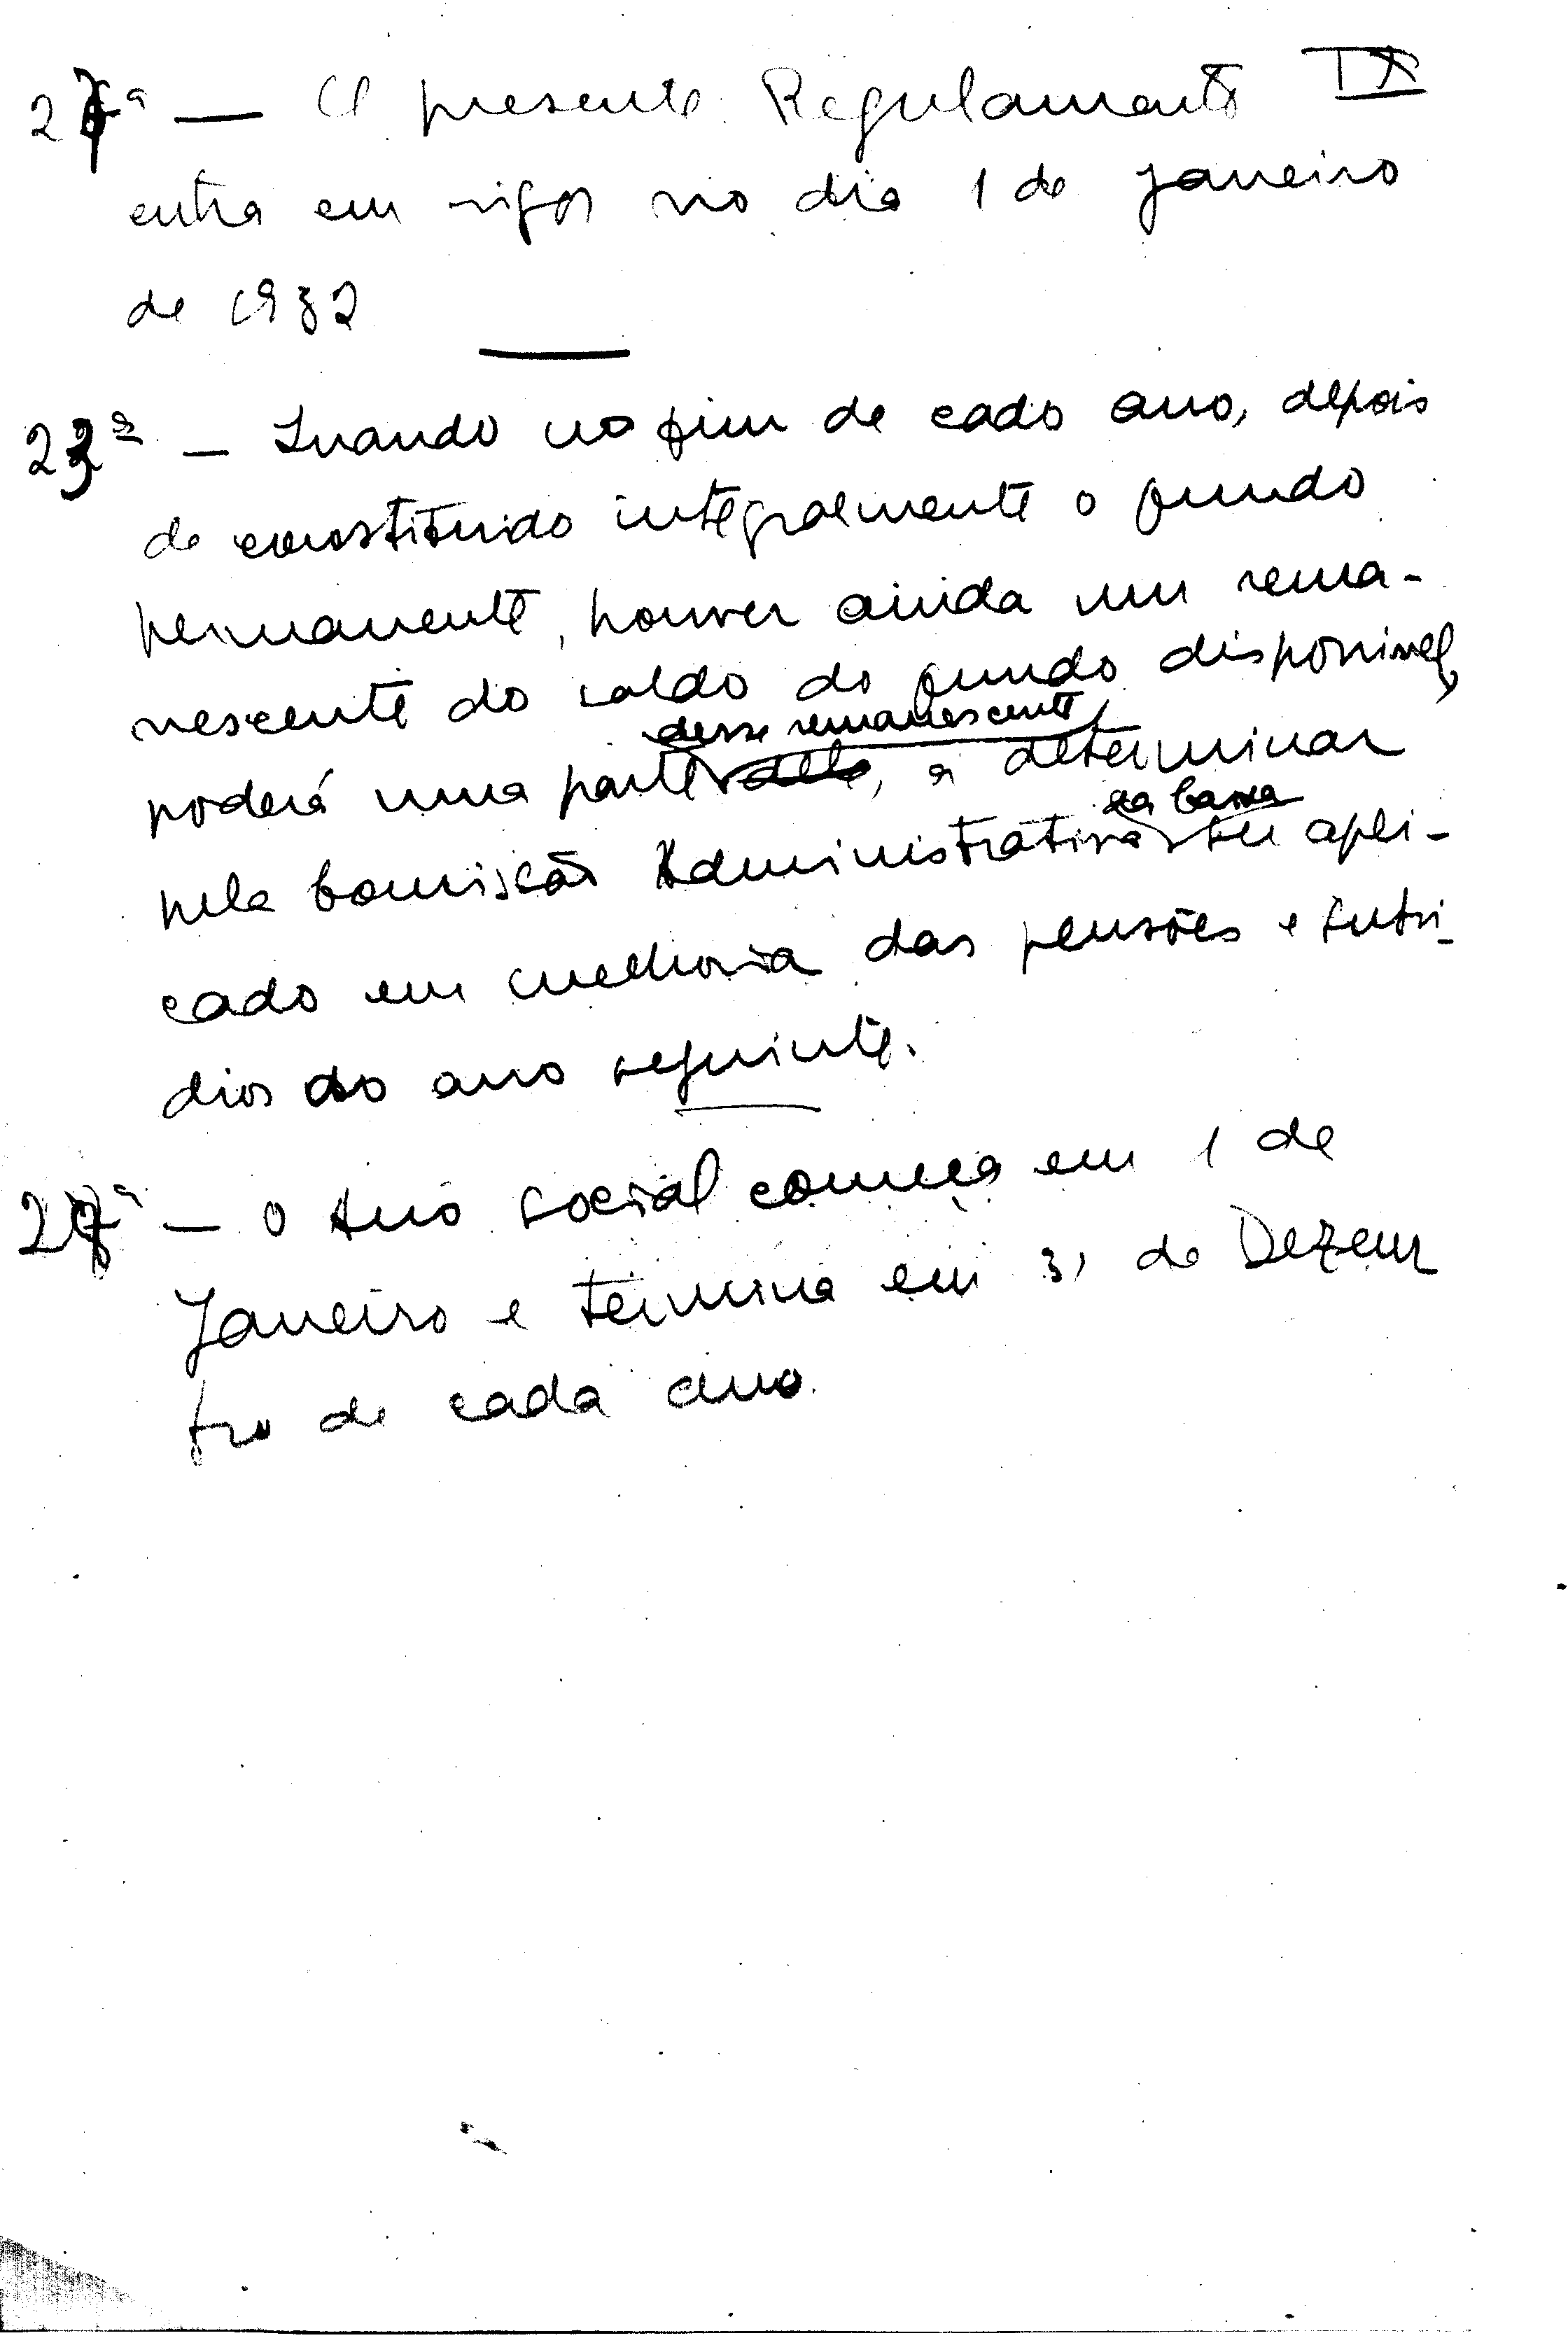 IX
27ª — O presente Regulamento
entra em vigor no dia 1 de Janeiro
de 1932
23ª — Quando no fim de cada ano, depois
de constituido integralmente o fundo
permanente, houver ainda um rema-
nescente do saldo do fundo disponivel,
desse remanescente,
poderá uma parte dele, a determinar
da Caixa
pela Comissão Administrativa ser apli-
cado em melhoria das pensões e subsi-
dios do ano seguinte.
— O Ano social começa em 1 de
Janeiro e termina em 31 de Dezem
bro de cada ano.